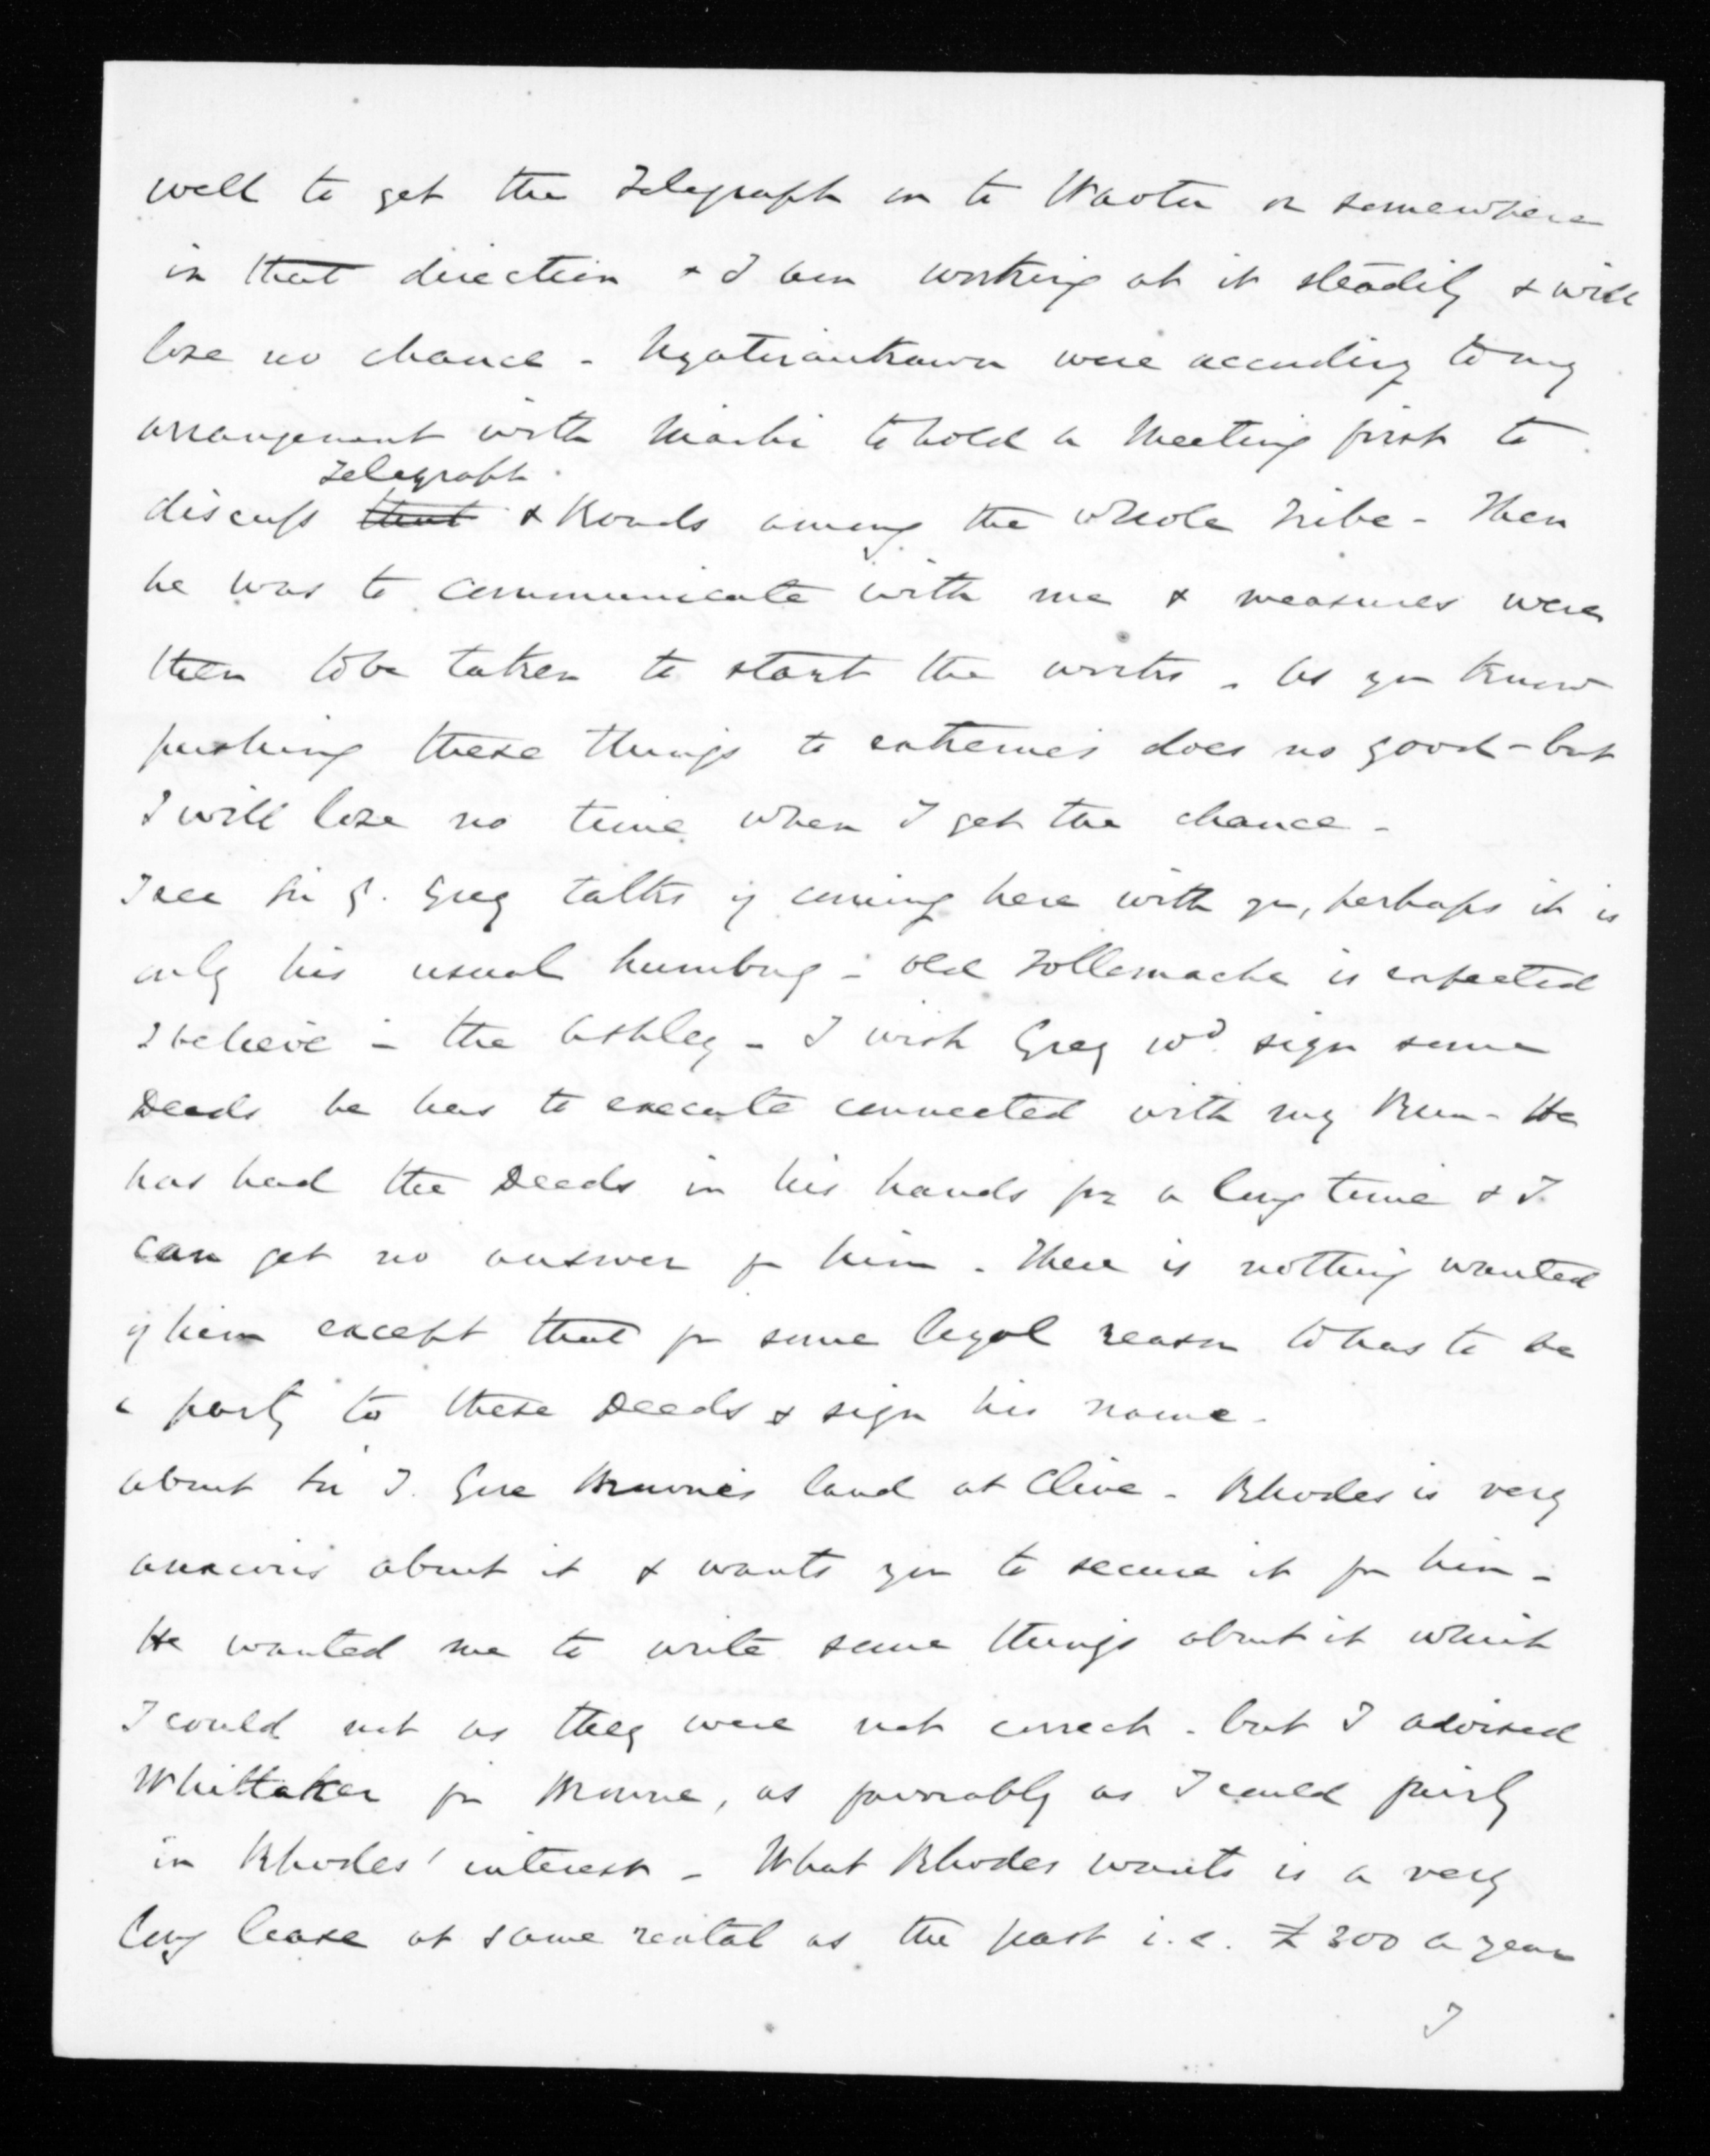 well to get the Telegraph on to Waotu or somewhere
in that direction & I am working at it steadily & will
lose no chance - Ngatiraukawa were according to my
arrangement with to hold a Meeting first to
Telegraph
discuss that & Roads among the whole Tribe - Then
he was to communicate with me & measures were
then to be taken to start the works - As you know
pushing these things to extremes does no good - but
I will lose no time when I get the chance -
I see Sir G. Grey talks of coming here with you, perhaps it is
only his usual humbug - old Tollemache is expected
I believe - the Ashley - I wish Grey wd. sign some
Deeds he has to execute connected with my Run - He
has had the Deeds in his hands for a long time & I
can get no answer fr him - There is nothing wanted
of him except that for some legal reason has to be
a party to these Deeds & sign his name -
about Sir T. Gore Browne's land at Clive - Rhodes is very
anxious about it & wants you to secure it for him -
He wanted me to write some things about it which
I could not as they were not correct - but I advised
Whittaker for Browne, as favorably as I could fairly
in Rhodes' interest - What Rhodes wants is a very
long lease at same rental as the past i.e. £300 a year
I